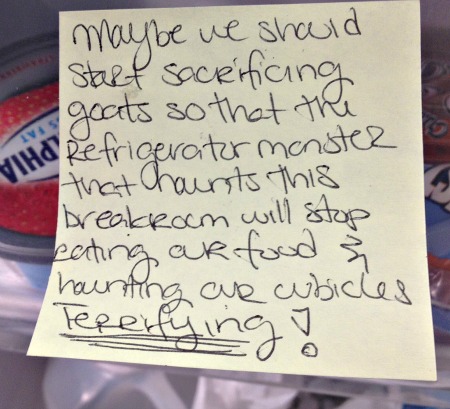 Maybe we should
start sacrificing
goats so that the
Refrigerator monster
that haunts this
breakroom will stop
eating our food &
haunting our cubicles
Terrifying!
PHIA